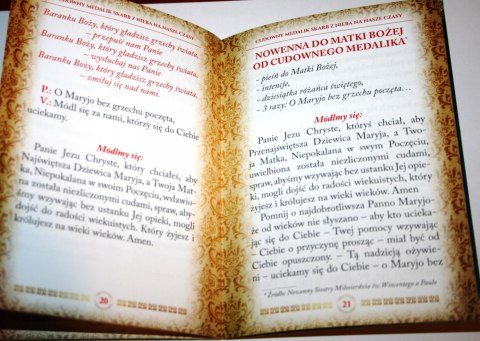 CUDOWNY MEDALIK SKARB Z NIEBA NA NASZE CZASY
Baranku Boży, który gładzisz grzechy świata,
– przepuść nam Panie
Baranku Boży, który gładzisz grzechy świata,
– wysłuchaj nas Panie
Baranku Boży, który gładzisz grzechy świata,
– zmiłuj się nad nami.
P.: O Maryjo bez grzechu poczęta,
V.: Módl się za nami, którzy się do Ciebie
uciekamy.
Módlmy się:
Panie Jezu Chryste, który chciałeś, aby
Najświętsza Dziewica Maryja, a Twoja Mat-
ka, Niepokalana w swoim Poczęciu, wsławio-
na została niezliczonymi cudami, spraw, aby-
śmy wzywając bez ustanku Jej opieki, mogli
dojść do radości wiekuistej. Który żyjesz i
królujesz na wieki wieków. Amen.
20
CUDOWNY MEDALIK SKARB Z NIEBA NA NASZE CZASY
NOWENNA DO MATKI BOŻEJ
OD CUDOWNEGO MEDALIKA*
- pieśń do Matki Bożej,
- intencje,
- dziesiątka różańca świętego,
- 3 razy: O Maryjo bez grzechu poczęta...
Módlmy się:
Panie Jezu Chryste, któryś chciał, aby
Przenajświętsza Dziewica Maryja, a Two-
ja Matka, Niepokalana w swoim Poczęciu,
uwielbiona została niezliczonymi cudami,
spraw, abyśmy wzywając bez ustanku Jej opie-
ki, mogli dojść do radości wiekuistych, który
żyjesz i królujesz na wieki wieków. Amen
Pomnij o najdobrotliwsza Panno Maryjo–
że od wieków nie słyszano – aby kto ucieka-
jąc się do Ciebie – Twej pomocy wzywając
– Ciebie o przyczynę prosząc – miał być od
Ciebie opuszczony. – Tą nadzieją ożywie-
ni – uciekamy się do Ciebie – o Maryjo bez
* Źródło: Nowenny Siostry Miłosierdzia św. Wincentego a Paulo
21